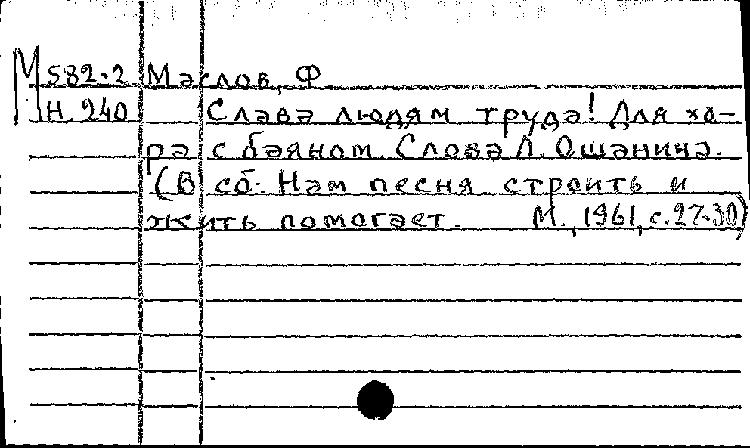 М 582-2 Маслов, Ф
Н 240 Слава людям труда! Для хо-
ра с баяном. Слова Л. Ошанина.
(В сб: Нам песня строить и
жить помогает. М., 1961, с. 27-30)